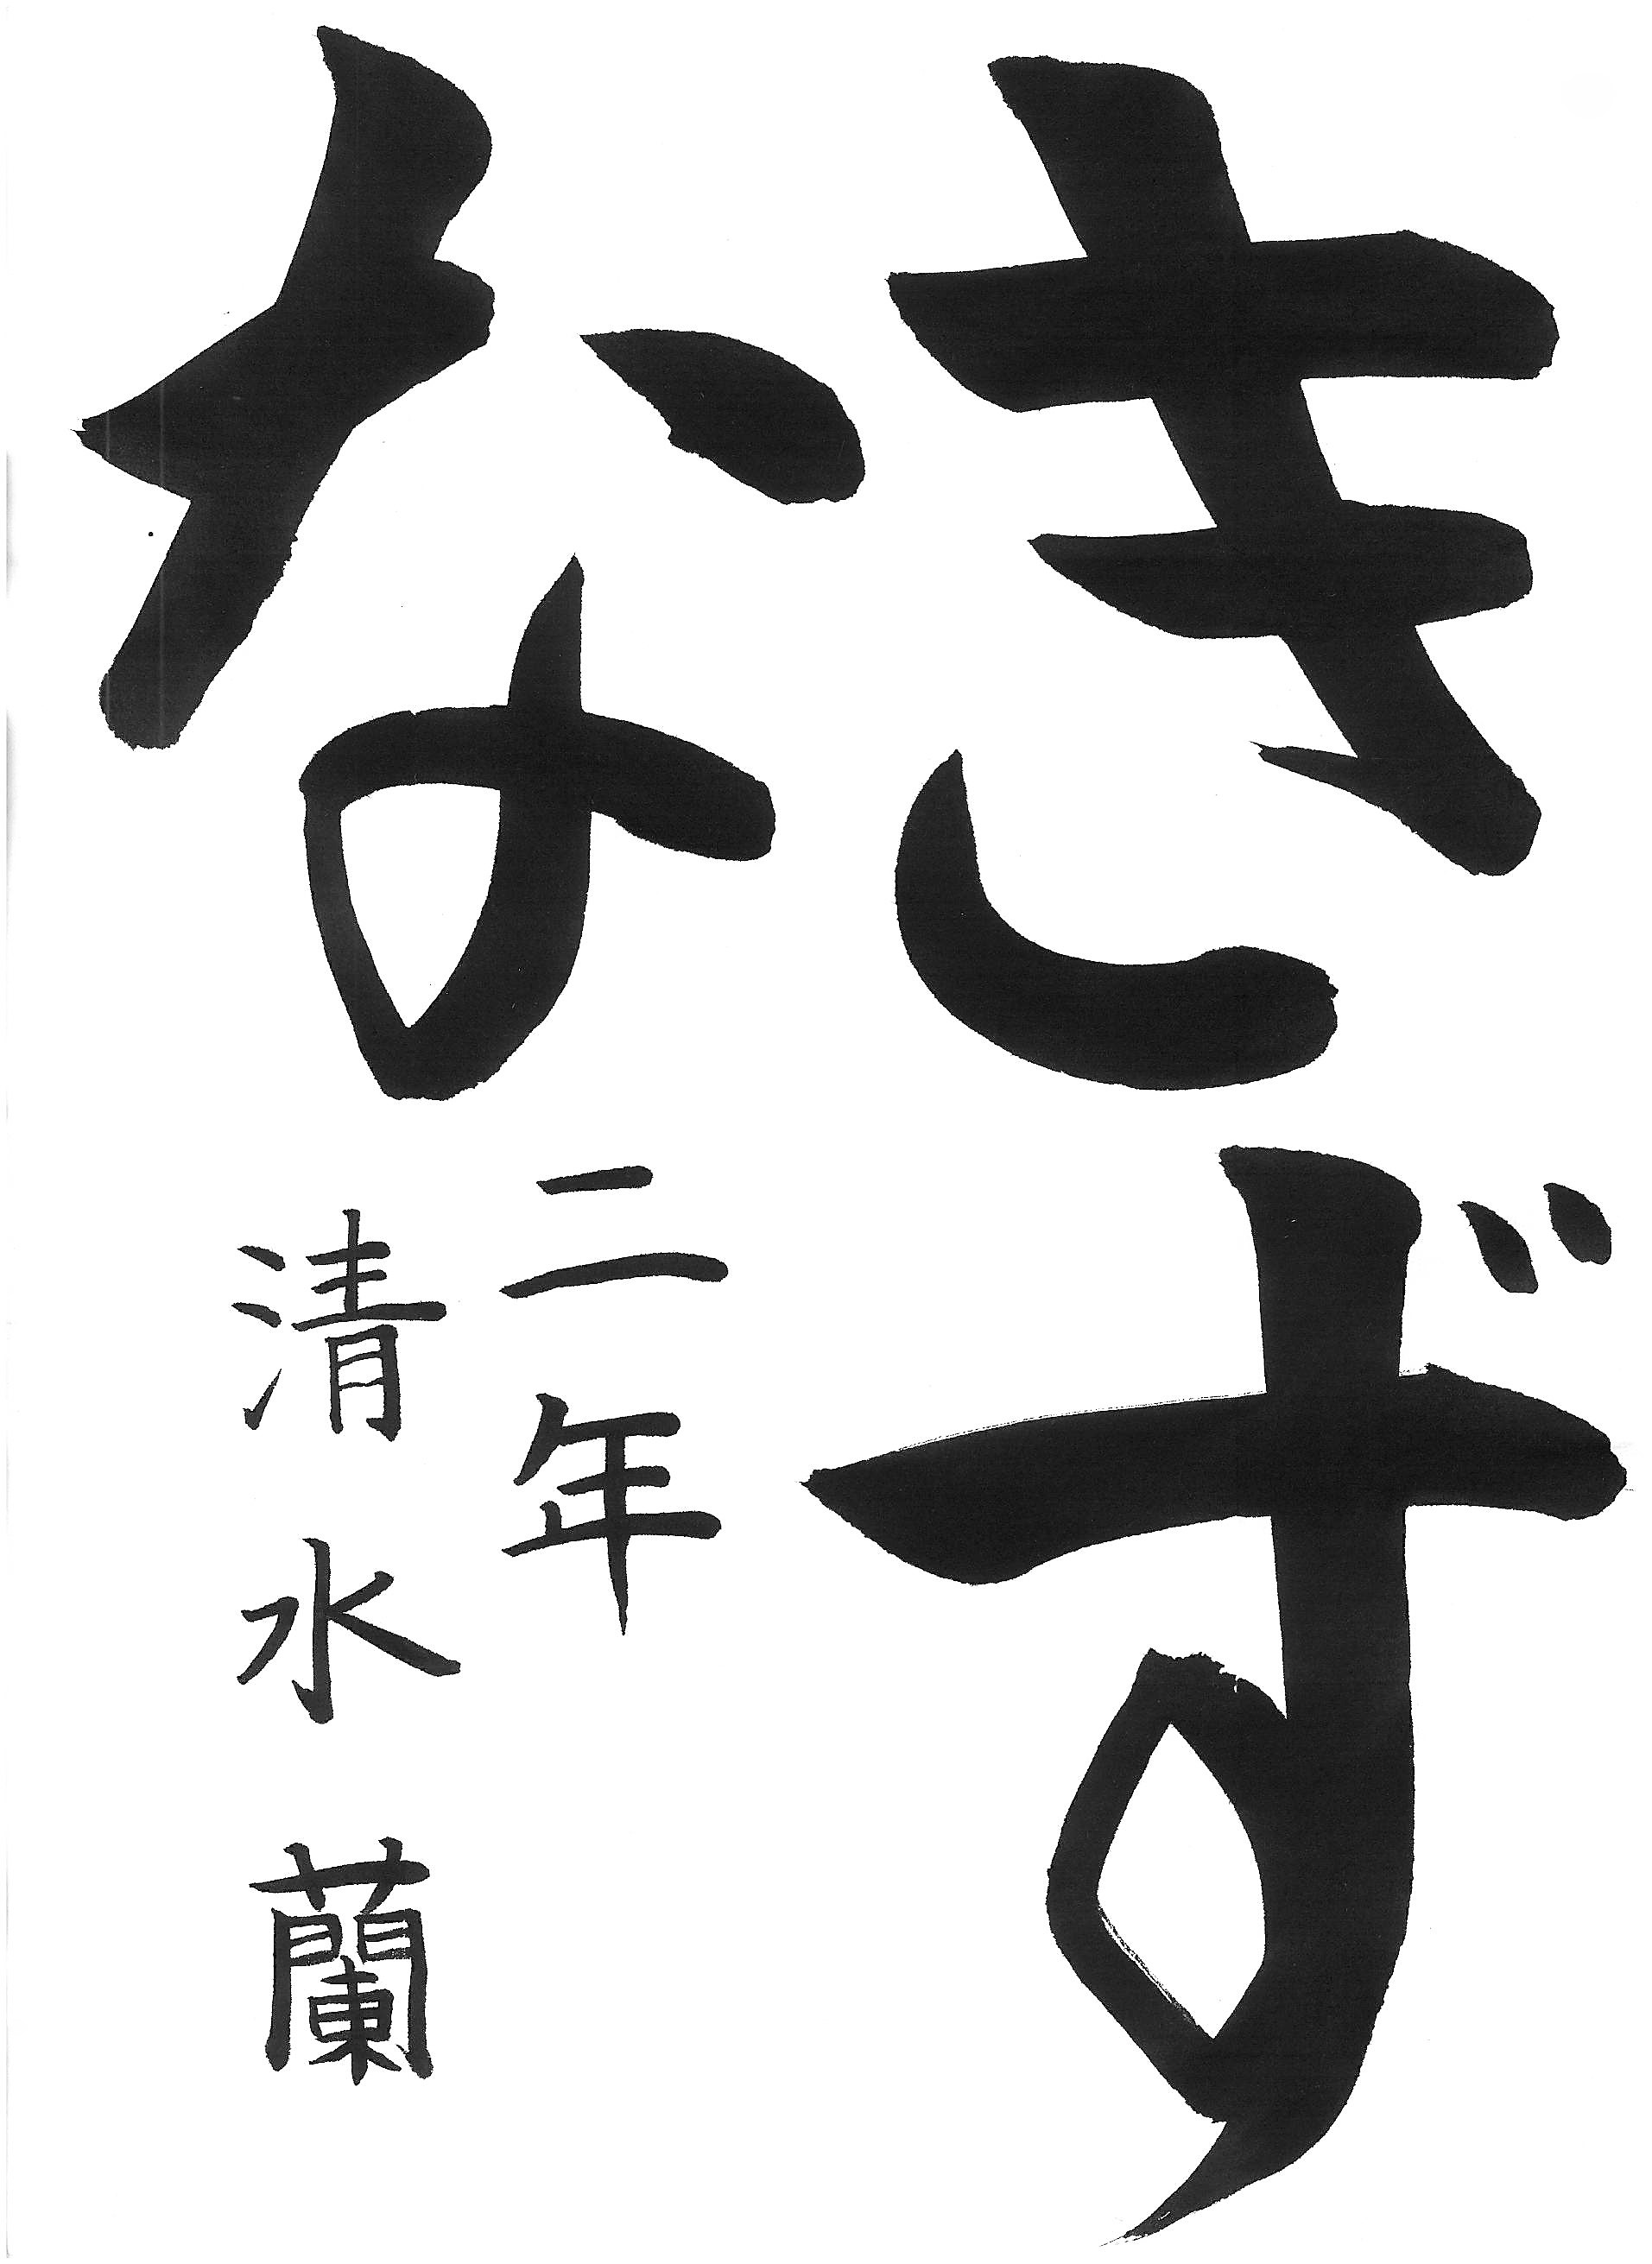 きず
な
二年
清水蘭